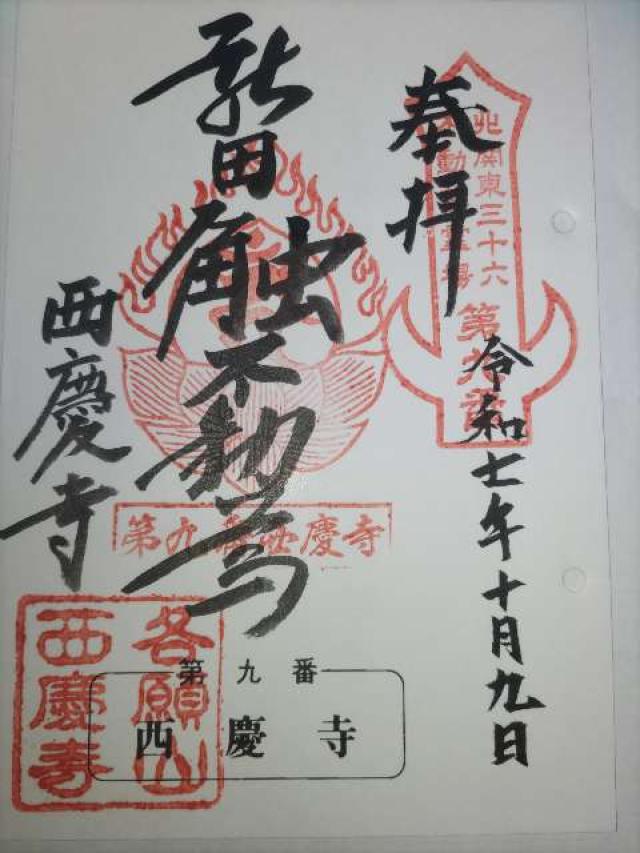 奉拝
北関東三十六
不動霊場
第九番
令和七年十月九日
新田
触不動尊
第九番西慶寺
西慶寺
各願山
西慶寺
第九番
西慶寺